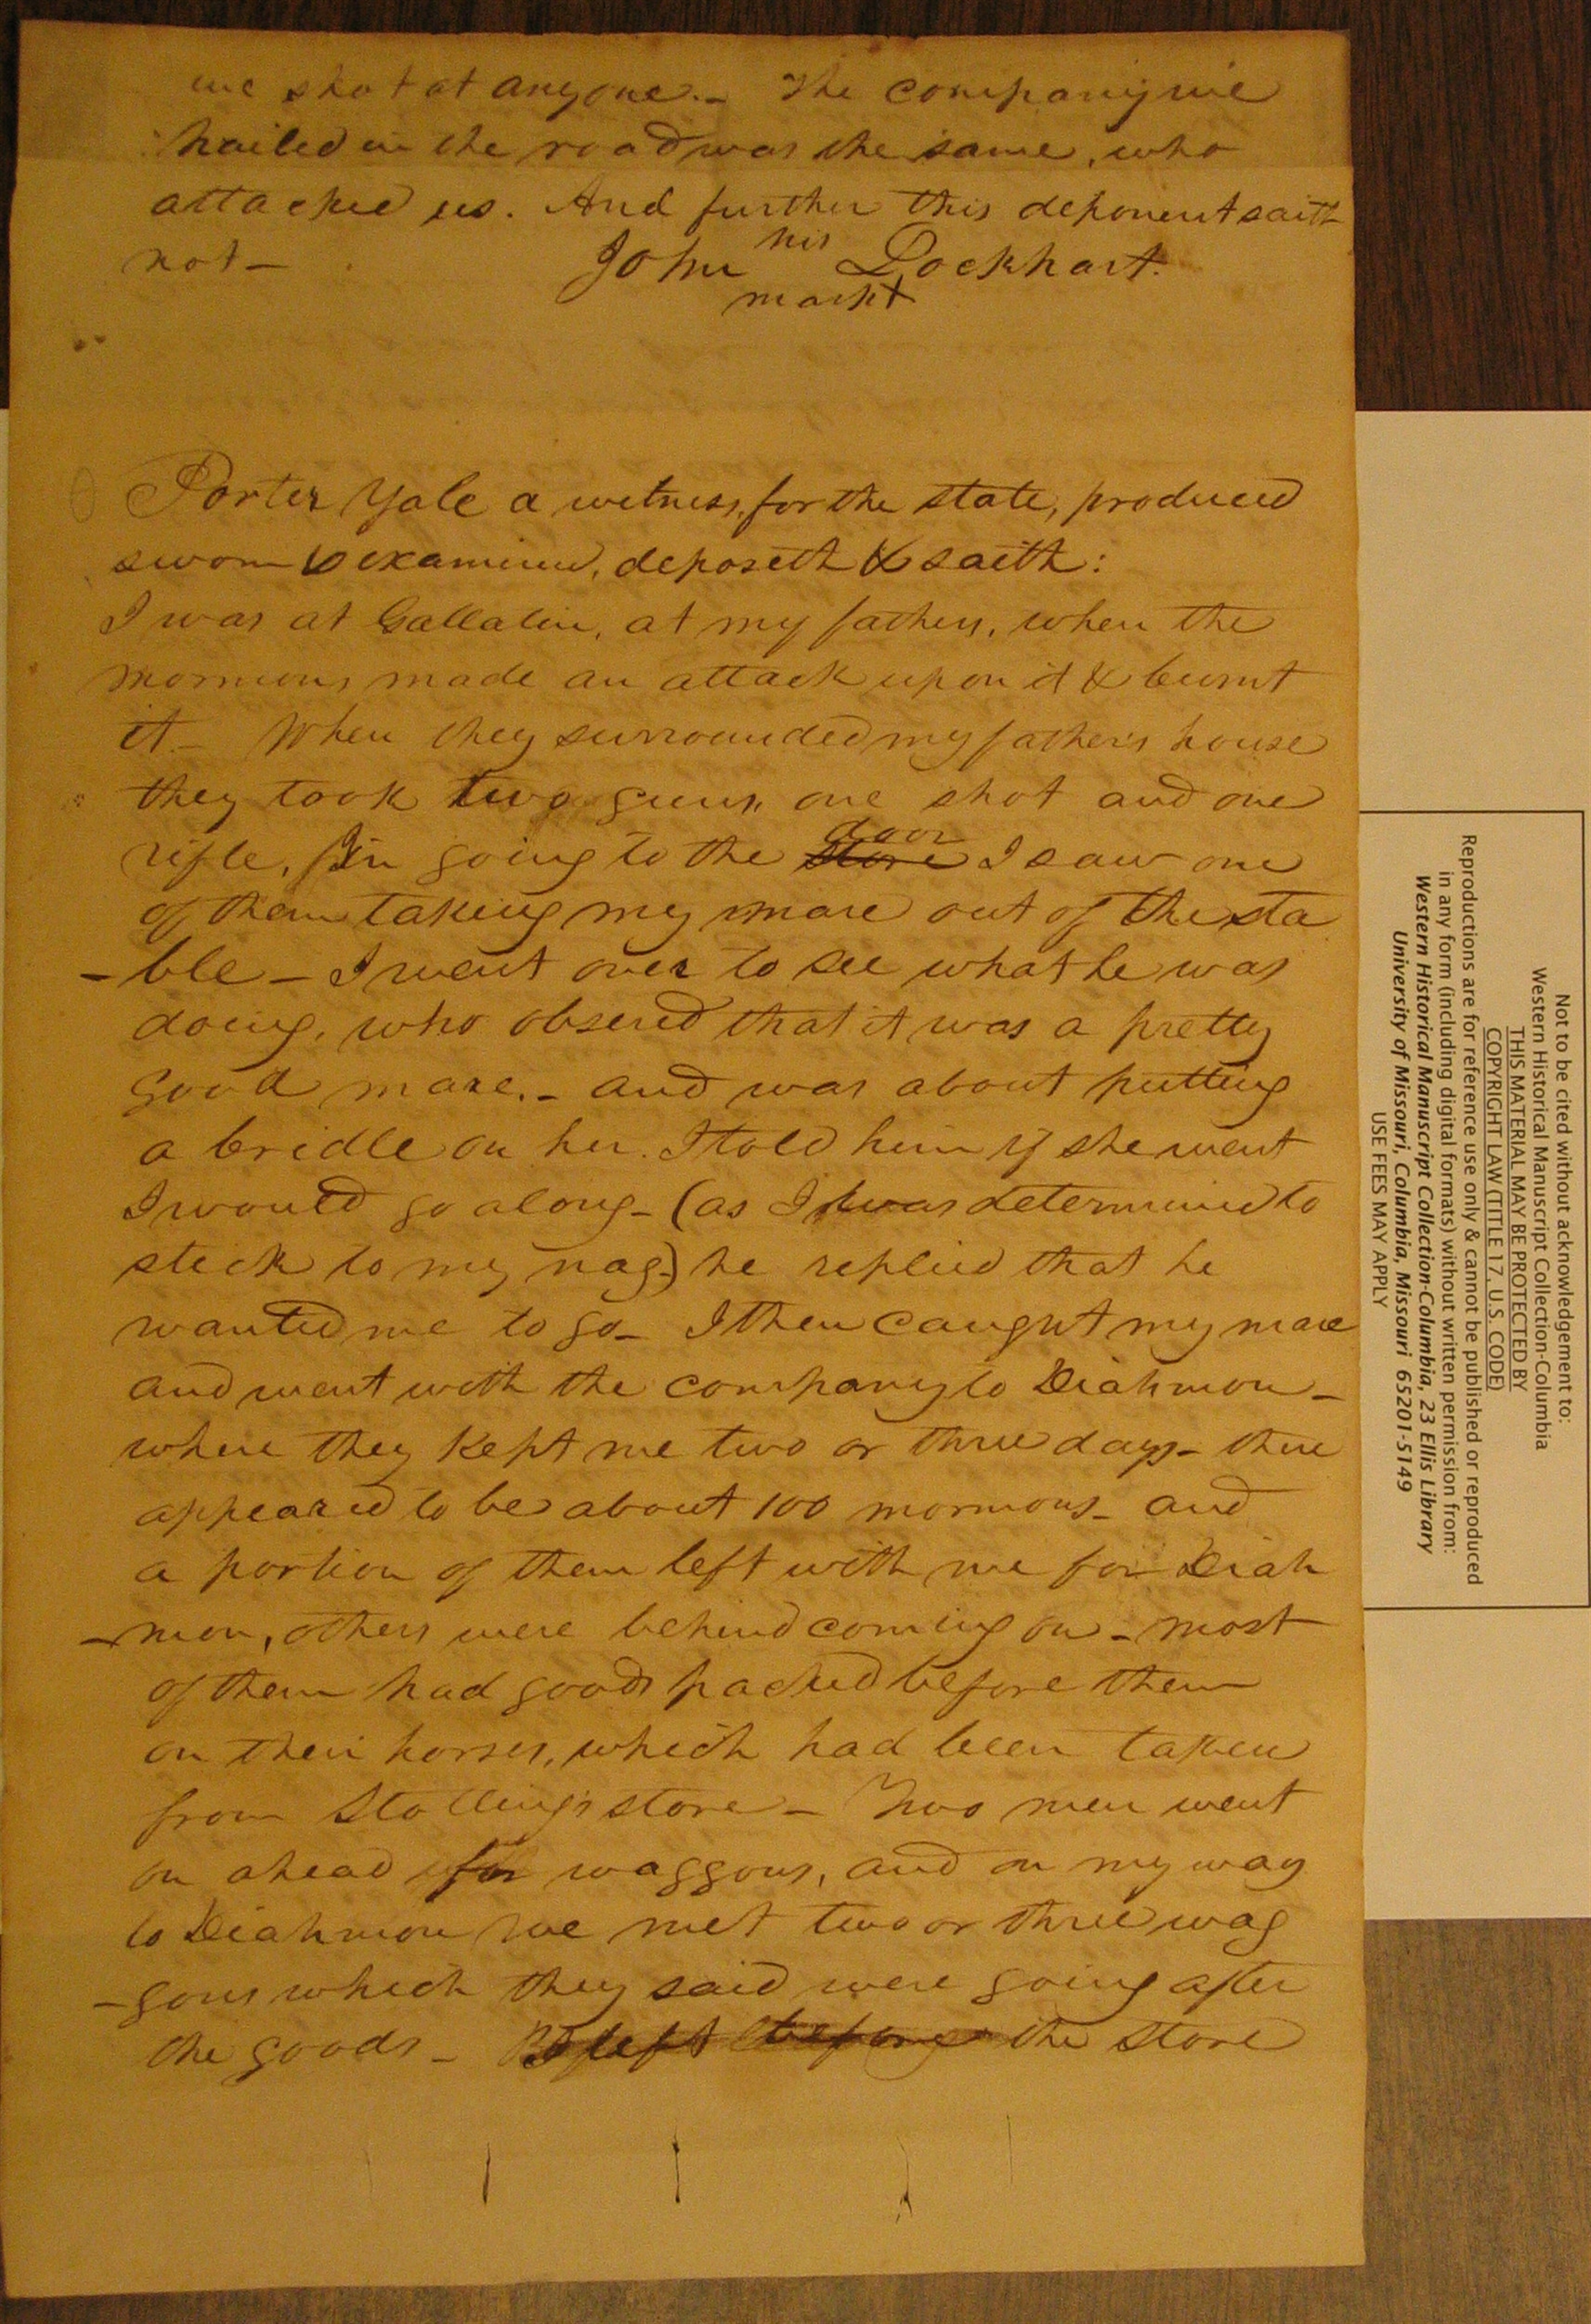 we shot at anyone.- The company we
hailed in the road was the same, who
attacked us. And further this deponent saith
not-
John his Lockhart.
mark +
Porter Yale a witness, for the state, produced
sworn & examined, deposeth & saith:
I was at Gallatin, at my fathers, when the
mormons made an attack upon it & burnt
it.- When they surrounded my father's house
they took two guns, one shot and one
rifle, In going to the store door I saw one
of them taking my mare out of the sta
-ble - I went over to see what he was
doing, who obsered that it was a pretty
good mare.- and was about putting
a bridle on her. I told him if she went
I would go along- (as I was determined to
stick to my nag.) he replied that he
wanted me to go- I then caught my mare
and went with the company to Diahmon-
where they kept me two or three days- there
appeared to be about 100 mormons- and
a portion of them left with me for Diah
-mon, others were behind coming on - most
of them had goods packed before them
on their horses, which had been taken
from Stolling's store - Two men went
on ahead for waggons, and on my way
to Diahmon we met two or three wag
-gons which they said were going after
the goods - I left before the store
Not to be cited without acknowledgement to:
Western Historical Manuscript Collection-Columbia
THIS MATERIAL MAY BE PROTECTED BY
COPYRIGHT LAW (TITLE 17, U.S. CODE)
Reproductions are for reference use only & cannot be published or reproduced
in any form (including digital formats) without written permission from:
Western Historical Manuscript Collection-Columbia, 23 Ellis Library
University of Missouri, Columbia, Missouri 65201-5149
USE FEES MAY APPLY